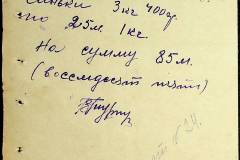 синьки 3 кг 400 гр.
по 25 м. 1 кг
На сумму 85 м.
(восемдесят пять)